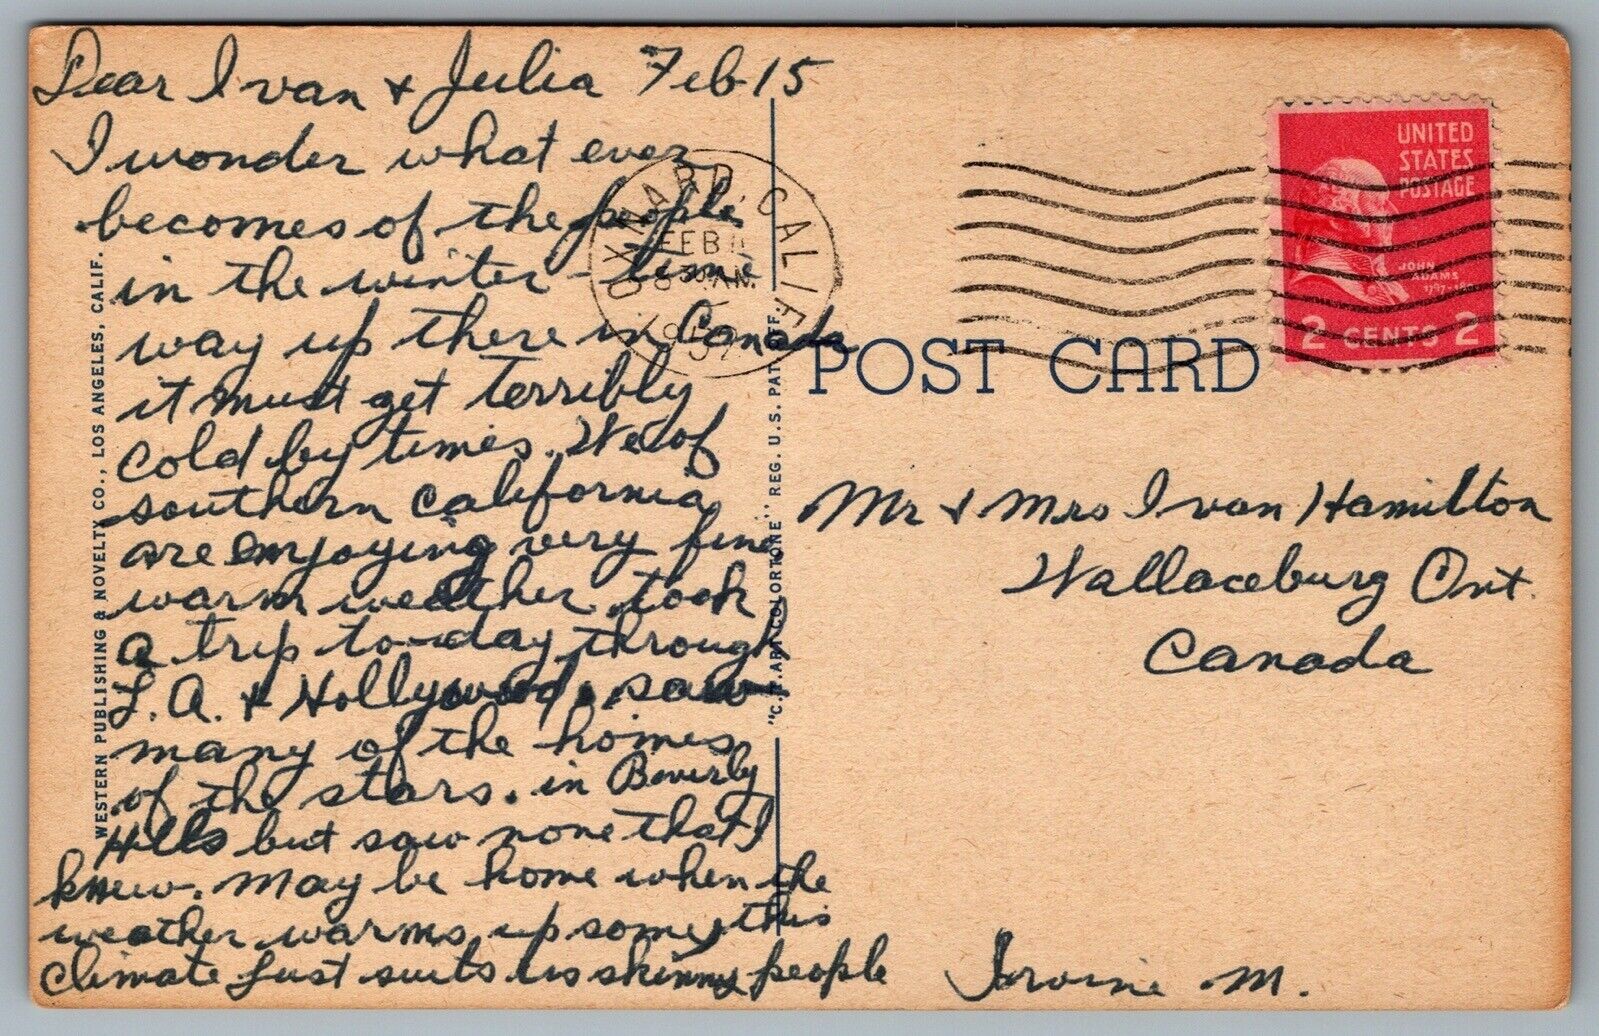 Dear Ivan & Julia Feb-15
I wonder what ever
becomes of the people
in the winter-time
way up there in Canada
it must get terribly
cold by times. We of
southern California
are enjoying very fine
warm weather. took
a trip to-day through
L.A. & Hollywood, saw
many of the homes
of the stars. in Beverly
Hills but saw none that I
knew. May be home when the
weather warms up some, this
climate just suits us skinny people
Irvine M.
WESTERN PUBLISHING & NOVELTY CO., LOS ANGELES, CALIF.
"C.T. ART-COLORTONE" REG. U.S. PAT. OFF.
OXNARD CALIF.
FEB
8 30 AM
195
POST CARD
UNITED
STATES
POSTAGE
JOHN
ADAMS
2 CENTS 2
Mr & Mrs Ivan Hamilton
Wallaceburg Ont.
Canada